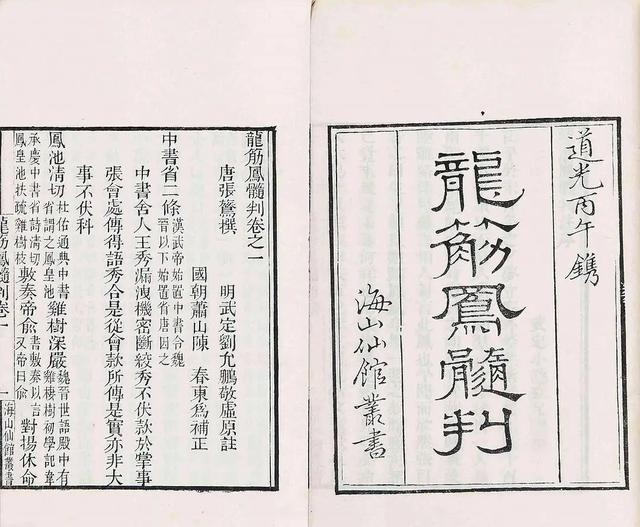 道光丙午鐫
龍筋鳳髓判
海山仙館叢書
龍筋鳳髓判卷之一
唐張鷟撰 明武定劉允鵬敬虛原註
國朝蕭山陳 春東為補正
中書省二條 漢武帝始置中書令魏晉以下始置省唐因之
中書舍人王秀漏洩機密斷絞秀不伏款於掌事
張會處傳得語秀合是從會款所傳是實亦非大
事不伏科
鳳池清切 杜佑通典中書省謂之鳳皇池 雞樹深嚴 魏晉世語殿中有雞棲樹初學記韋
承慶中書省詩清切鳳皇池扶疏雞樹枝 敷奏帝俞 書敷奏以言又帝曰俞 對揚休命
龍筋鳳髓判 卷一 一 海山仙館叢書